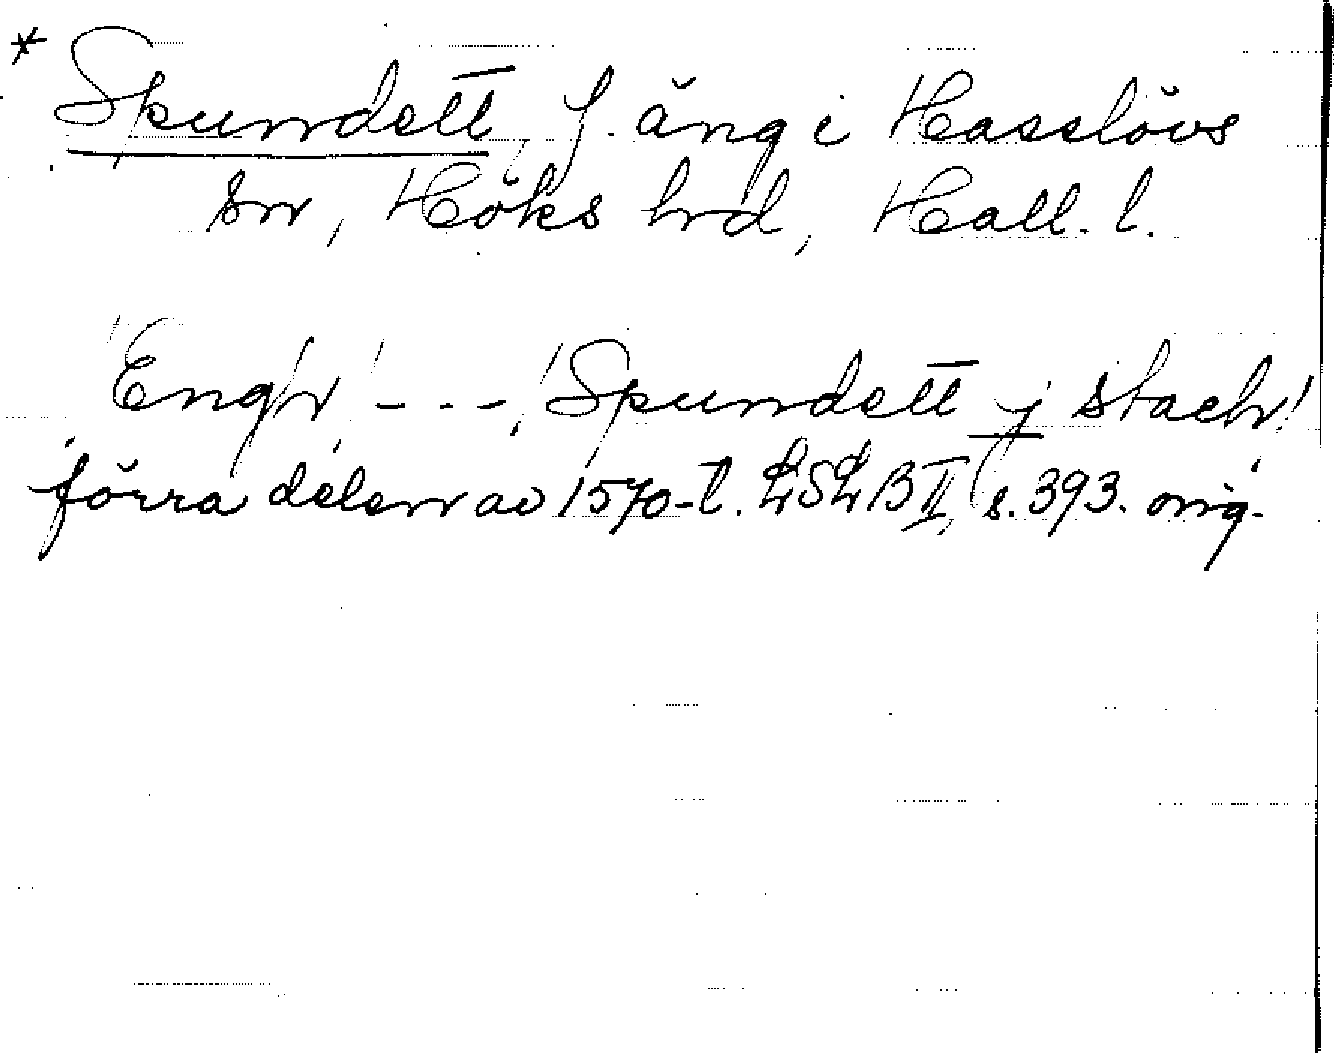 * Spundett, f. äng i Hasslövs
sn, Höks hrd, Hall. l.
Engh! - - -, ! Spundett j stach!
förra delen av 1570-t. LSLB II, s. 393. orig.